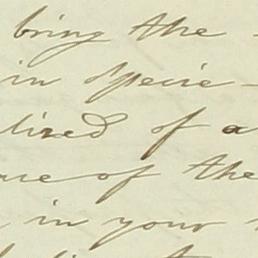 bring the
in specie
tired of a
of the
in your